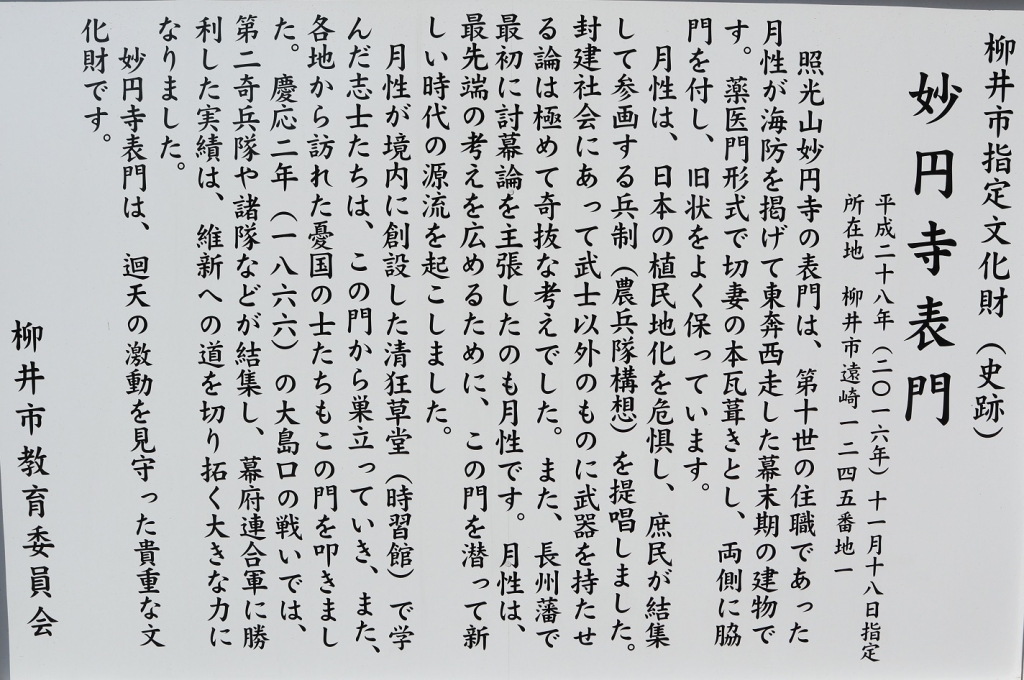 柳井市指定文化財（史跡）
妙円寺表門
平成二十八年（二〇一六年）十一月十八日指定
所在地　柳井市遠崎一二四五番地一
照光山妙円寺の表門は、第十世の住職であった
月性が海防を掲げて東奔西走した幕末期の建物で
す。薬医門形式で切妻の本瓦葺きとし、両側に脇
門を付し、旧状をよく保っています。
月性は、日本の植民地化を危惧し、庶民が結集
して参画する兵制（農兵隊構想）を提唱しました。
封建社会にあって武士以外のものに武器を持たせ
る論は極めて奇抜な考えでした。また、長州藩で
最初に討幕論を主張したのも月性です。月性は、
最先端の考えを広めるために、この門を潜って新
しい時代の源流を起こしました。
月性が境内に創設した清狂草堂（時習館）で学
んだ志士たちは、この門から巣立っていき、また、
各地から訪れた憂国の士たちもこの門を叩きまし
た。慶応二年（一八六六）の大島口の戦いでは、
第二奇兵隊や諸隊などが結集し、幕府連合軍に勝
利した実績は、維新への道を切り拓く大きな力に
なりました。
妙円寺表門は、迴天の激動を見守った貴重な文
化財です。
柳井市教育委員会